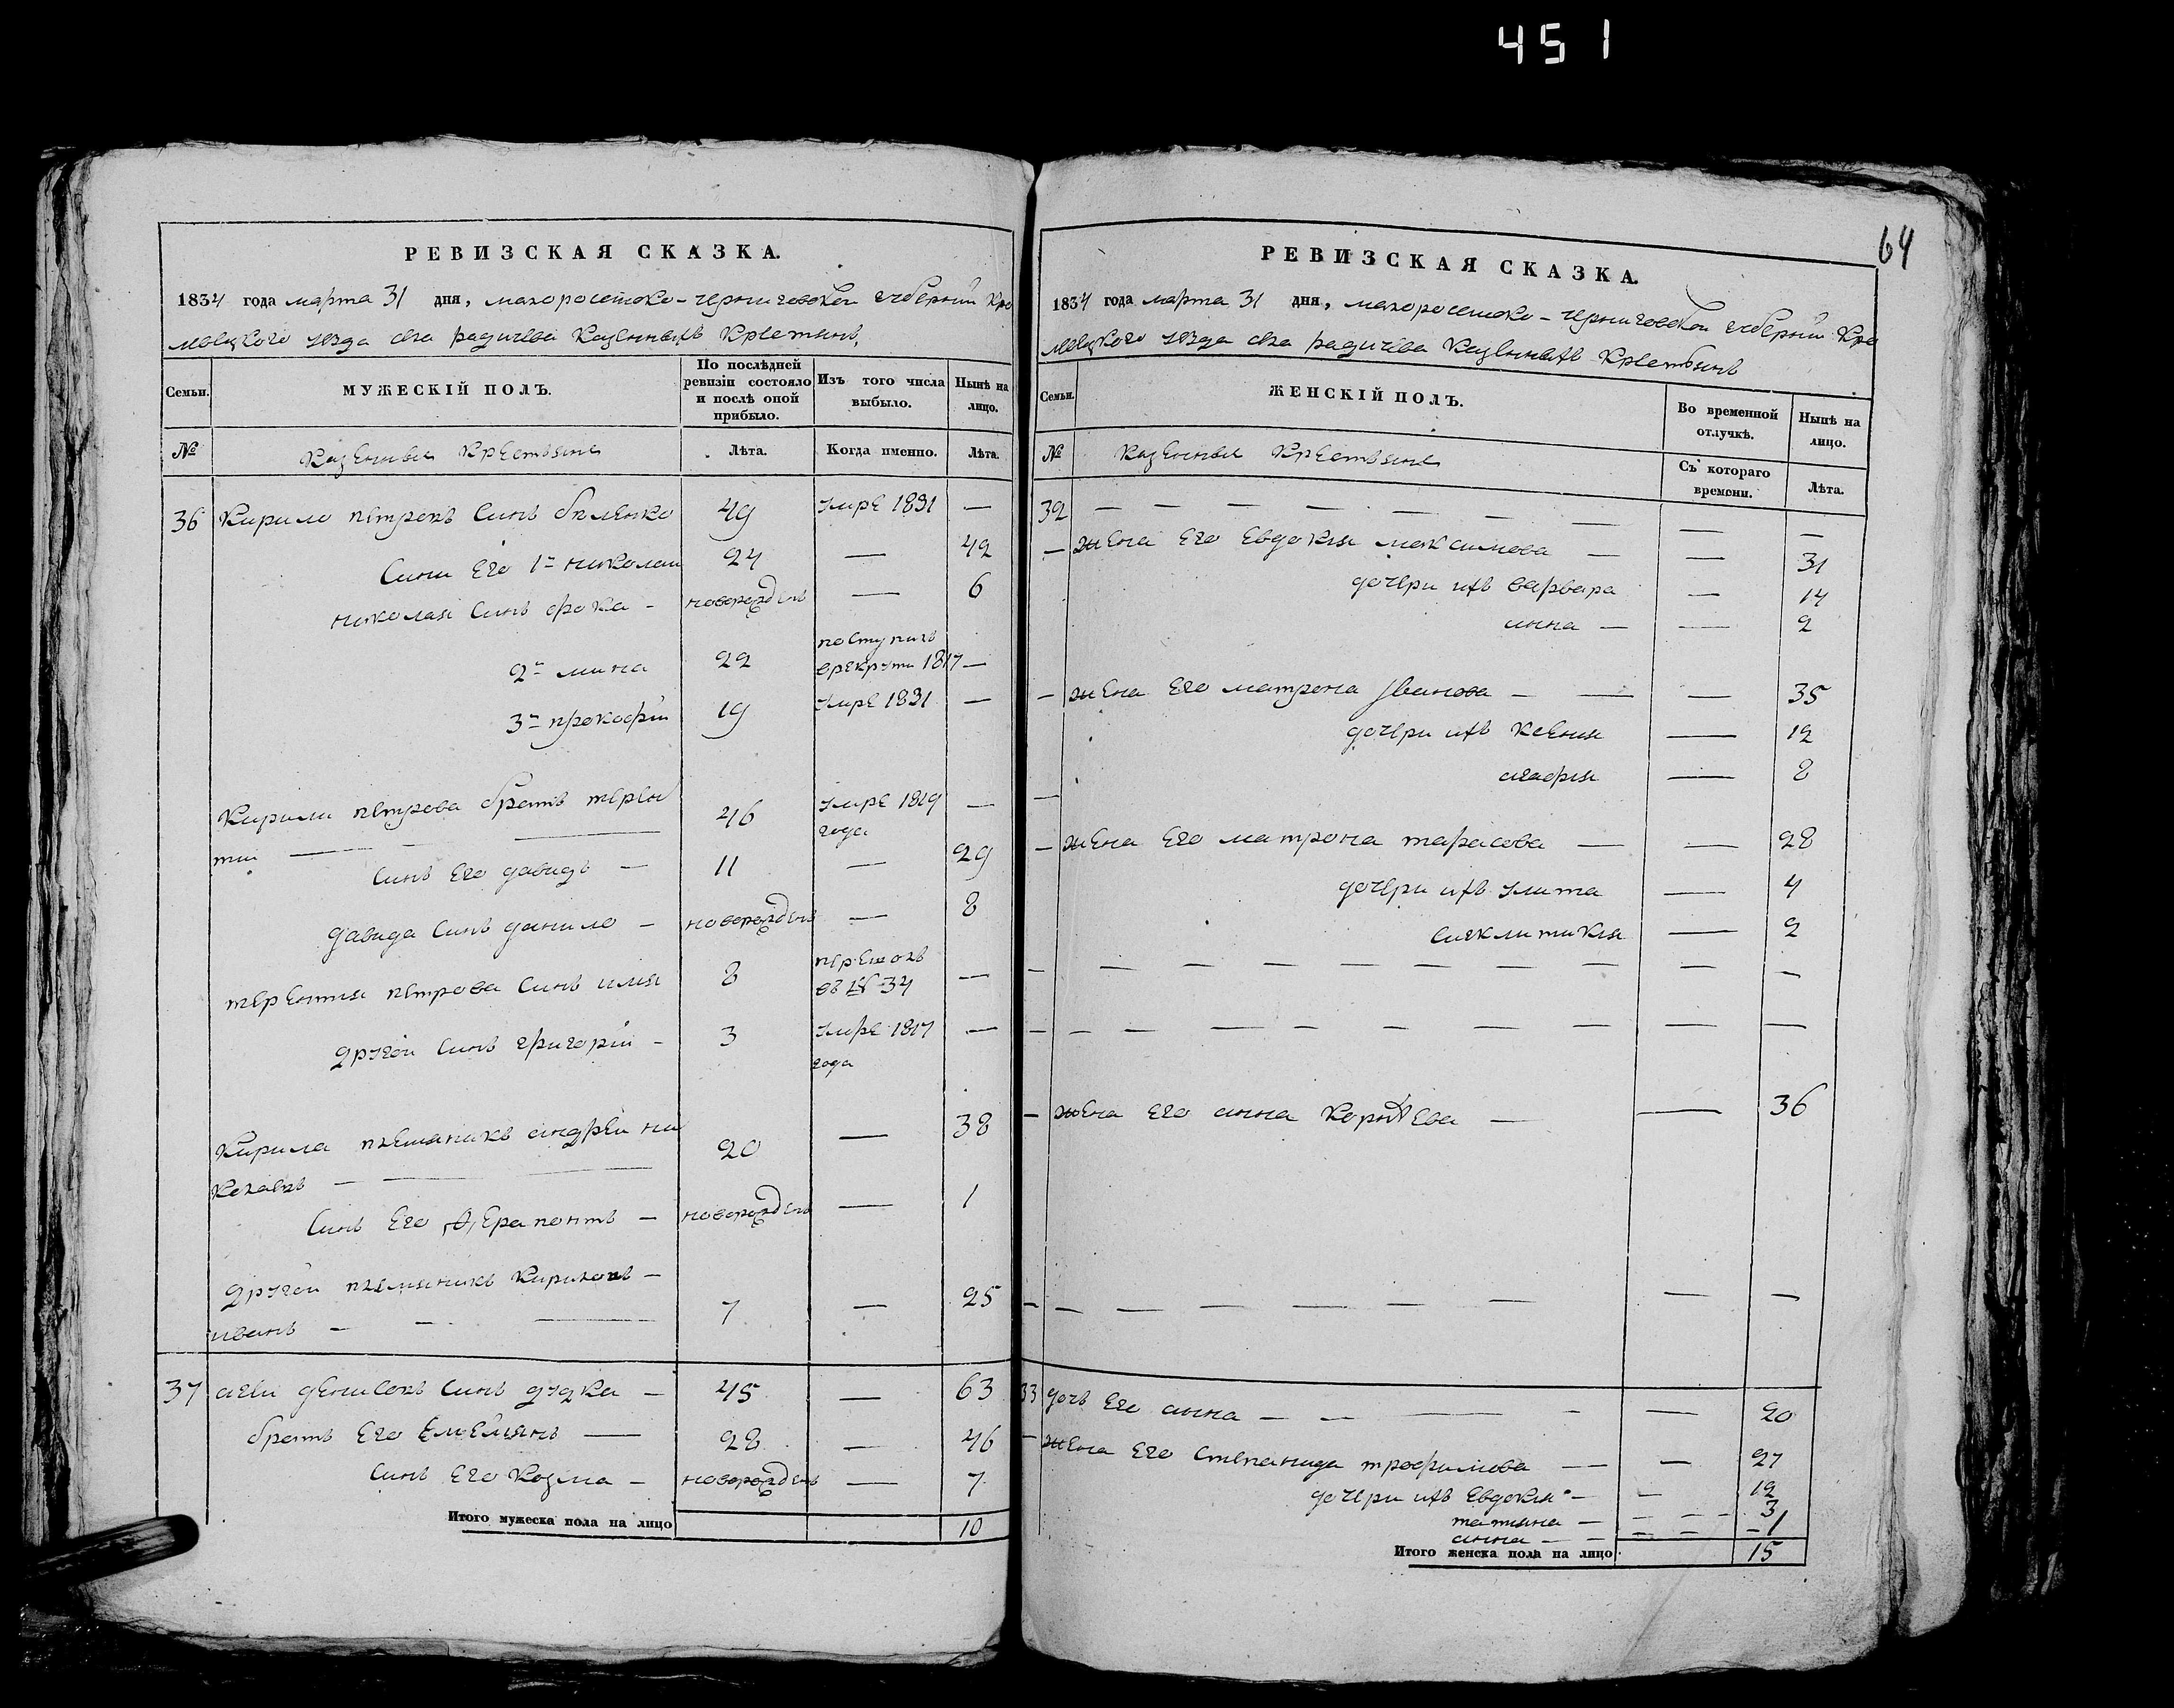 451
РЕВИЗСКАЯ СКАЗКА.
1834 года марта 31 дня, малоросейско-черниговской губерний Кро
левецкого уезда села радичева Казенныхъ Крестянъ,
Семьи.
МУЖЕСКІЙ ПОЛЪ.
По послѣдней ревизіи состояло и послѣ оной прибыло.
Изъ того числа выбыло.
Нынѣ на лицо.
№
Казенныи Крестьяне
Лѣта.
Когда именно.
Лѣта.
36 Кирило петровъ Синъ биленко 49 умре 1831 —
Сини Его 1й николаи 24 — 42
николая Синъ фока – новорожденъ — 6
2й мина 22 поступилъ врекруты 1817 —
3й прокофiи 19 умре 1831 —
Кирили петрова братъ терен
тии — 46 умре 1819 года —
Синъ Его давидъ — 11 — 29
давида Синъ данило — новорожденъ — 8
терентия петрова Синъ илия 8 —
другои Синъ григорiи – 3 умре 1817 года —
Кирила племяникъ андрeи ни
колаевъ — 20 — 38
Синъ Его Ѳерапонтъ — новорожденъ — 1
другои племяникъ Кириловъ —
иванъ — 7 — 25
37 агеи денисовъ Синъ дудка — 45 — 63
братъ Его Емелиянъ — 28 — 46
Синъ Его Козма — новорожденъ — 7
Итого мужеска пола на лицо 10
64
РЕВИЗСКАЯ СКАЗКА.
1834 года марта 31 дня, малоросейско – черниговской губерний Кро
левецкого уезда села радичева Казенныхъ Крестьянъ
Семьи.
ЖЕНСКІЙ ПОЛЪ.
Во временной отлучкѣ.
Нынѣ на лицо.
№
Казенныи Крестьяне
Съ котораго времени.
Лѣта.
32 — — — — — — — — —
— жена Его Евдокия максимова — — 31
дочери ихъ варвара — 14
анна — — 2
— жена Его матрона Иванова — — — 35
дочери ихъ Ксения — 12
агафия — 8
—
— жена Его матрона тарасова — — 28
дочери ихъ улита — 4
Сигклитикия — 2
— — — — — — — — — —
— — — — — — — — — —
— жена Его анна Корнѣева — — 36
— — — — — — — — —
33 дочь Его анна — — — — — 20
— жена Его Степанида трофимова — — 27
дочери ихъ Евдокия — — 12
татияна — — — — 3
анна — — — 1
Итого женска пола на лицо 15